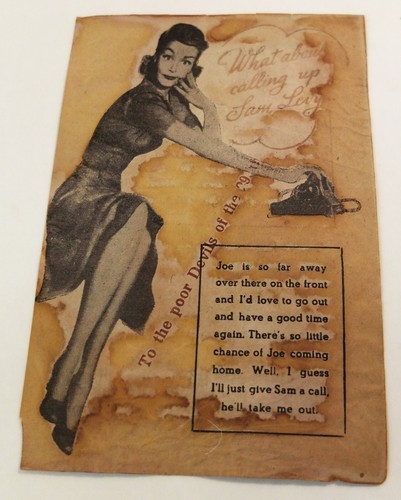 What about
calling up
Sam Levy
To the poor Devils of the 29th
Joe is so far away
over there on the front
and I'd love to go out
and have a good time
again. There's so little
chance of Joe coming
home. Well, I guess
I'll just give Sam a call,
he'll take me out.